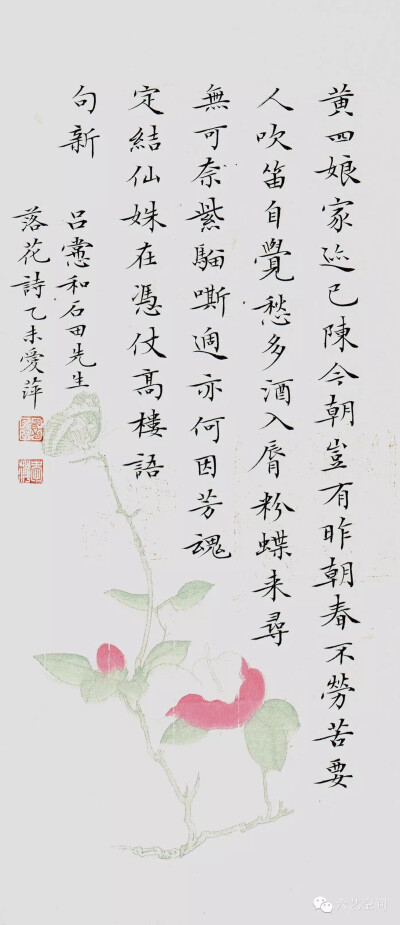 黃四娘家迹已陳今朝豈有昨朝春不勞苦要
人吹笛自覺愁多酒入脣粉蝶来尋
無可奈紫騮嘶過亦何因芳魂
定結仙姝在憑仗高樓語
句新
吕㦂和石田先生
落花詩乙未愛萍
六艺空间